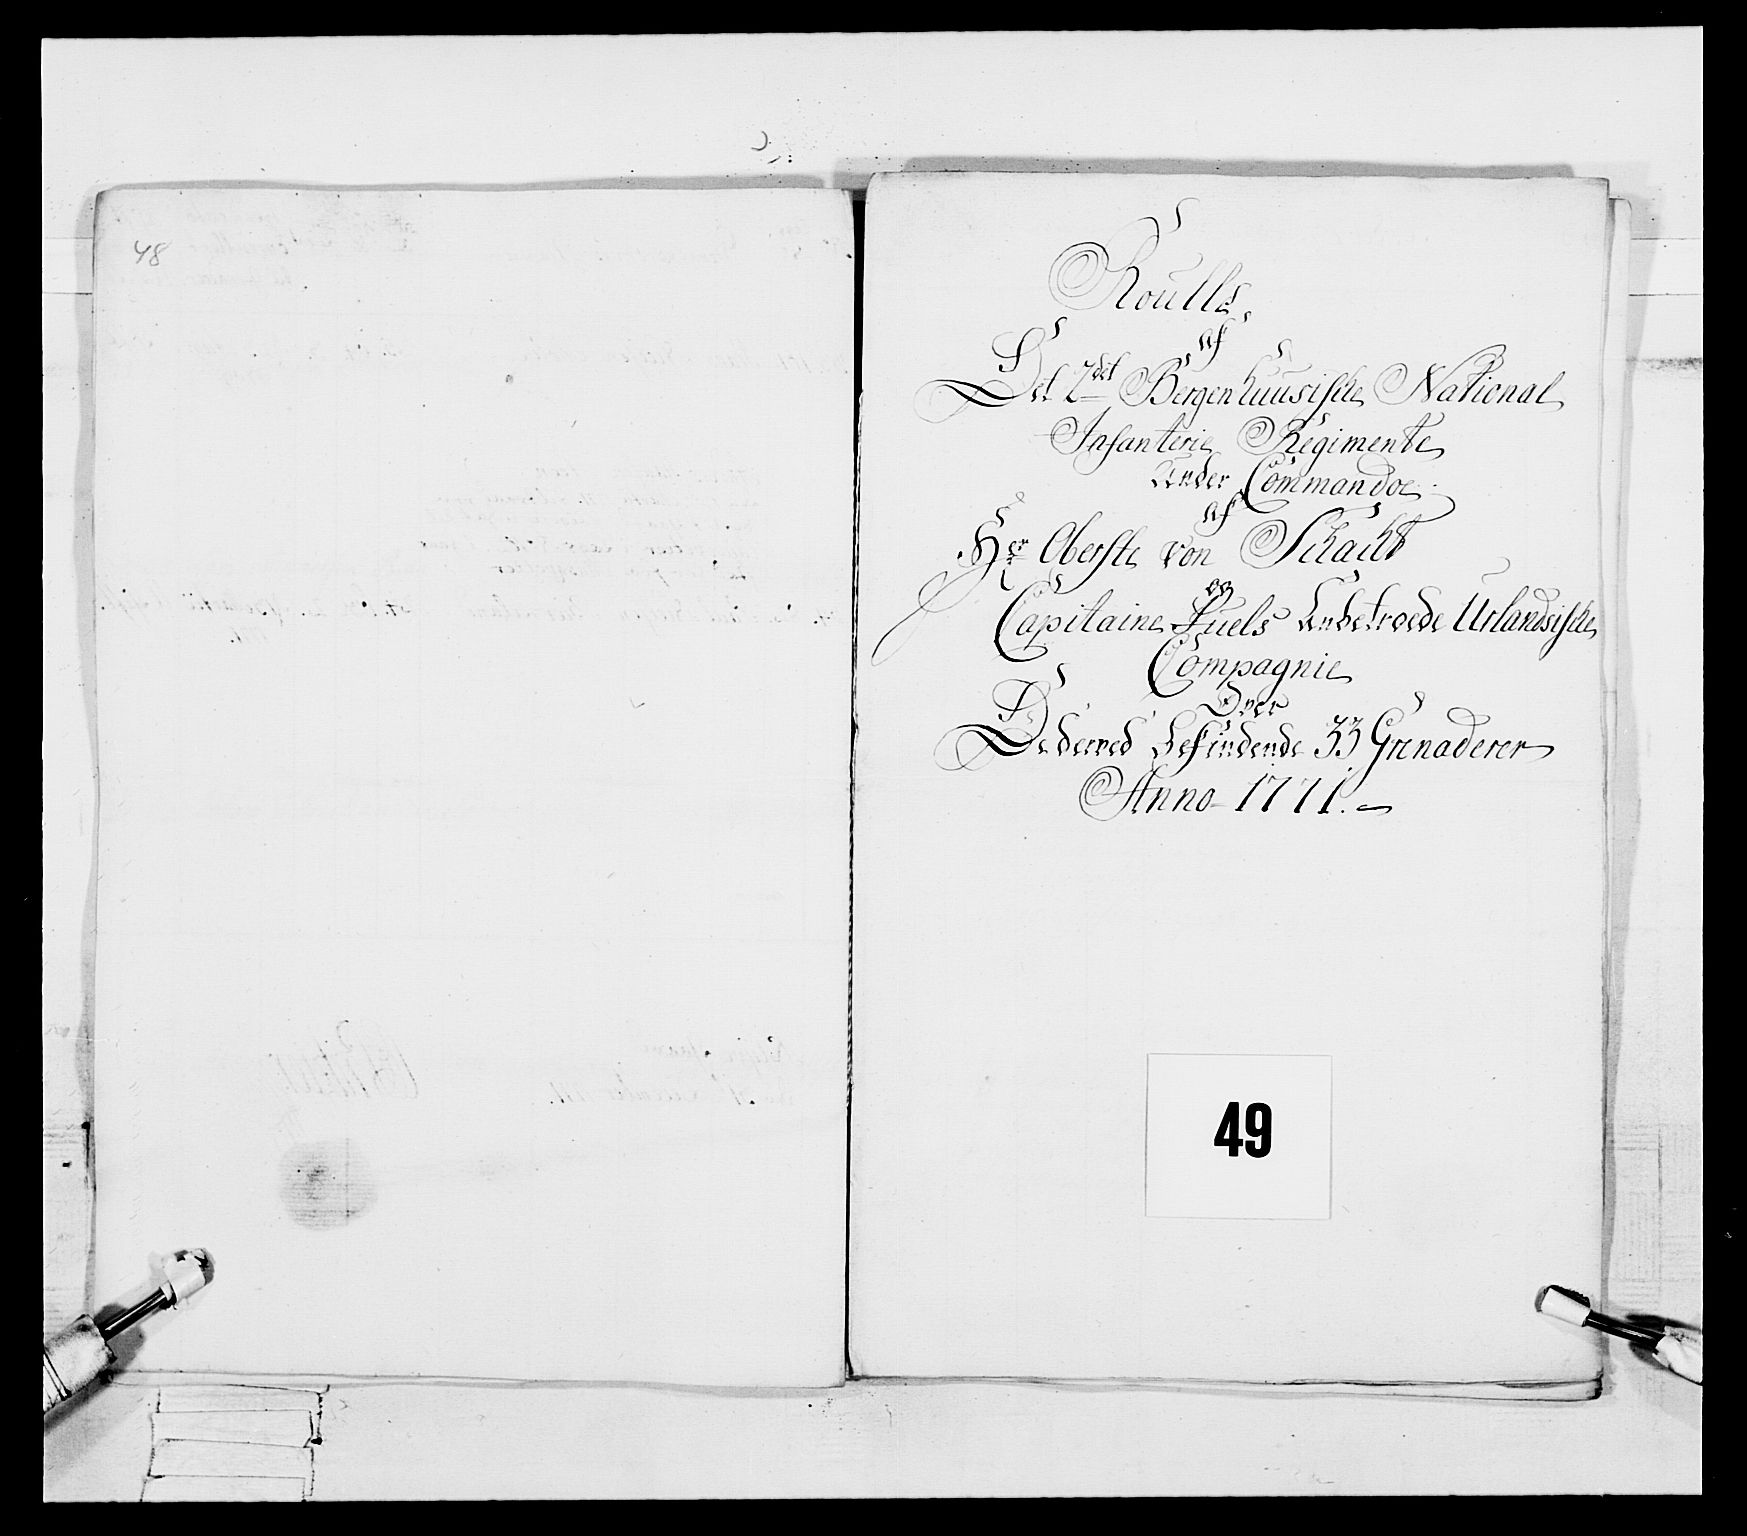 48
Roulle
af
Det 2det Bergenhuusiske National
Infanterie Regimente
Under Commandoe
af
Hr Oberste von Schacht
og
Capitaine Juels Anbetroede Urlandsiske
Compagnie
Over
De derved befindende 33 Grenaderer
Anno 1771.
49